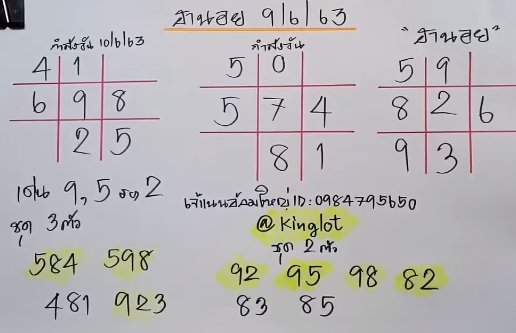 ฮานอย 9/6/63
กำลังวัน 10/6/63
4 1
6 9 8
2 5
กำลังวัน
5 0
5 7 4
8 1
"ฮานอย"
5 9
8 2 6
9 3
เด่น 9, 5 รอง 2
ชุด 3 ตัว
584 598
481 923
ID: 0984795650
@kinglot
ชุด 2 ตัว
92 95 98 82
83 85